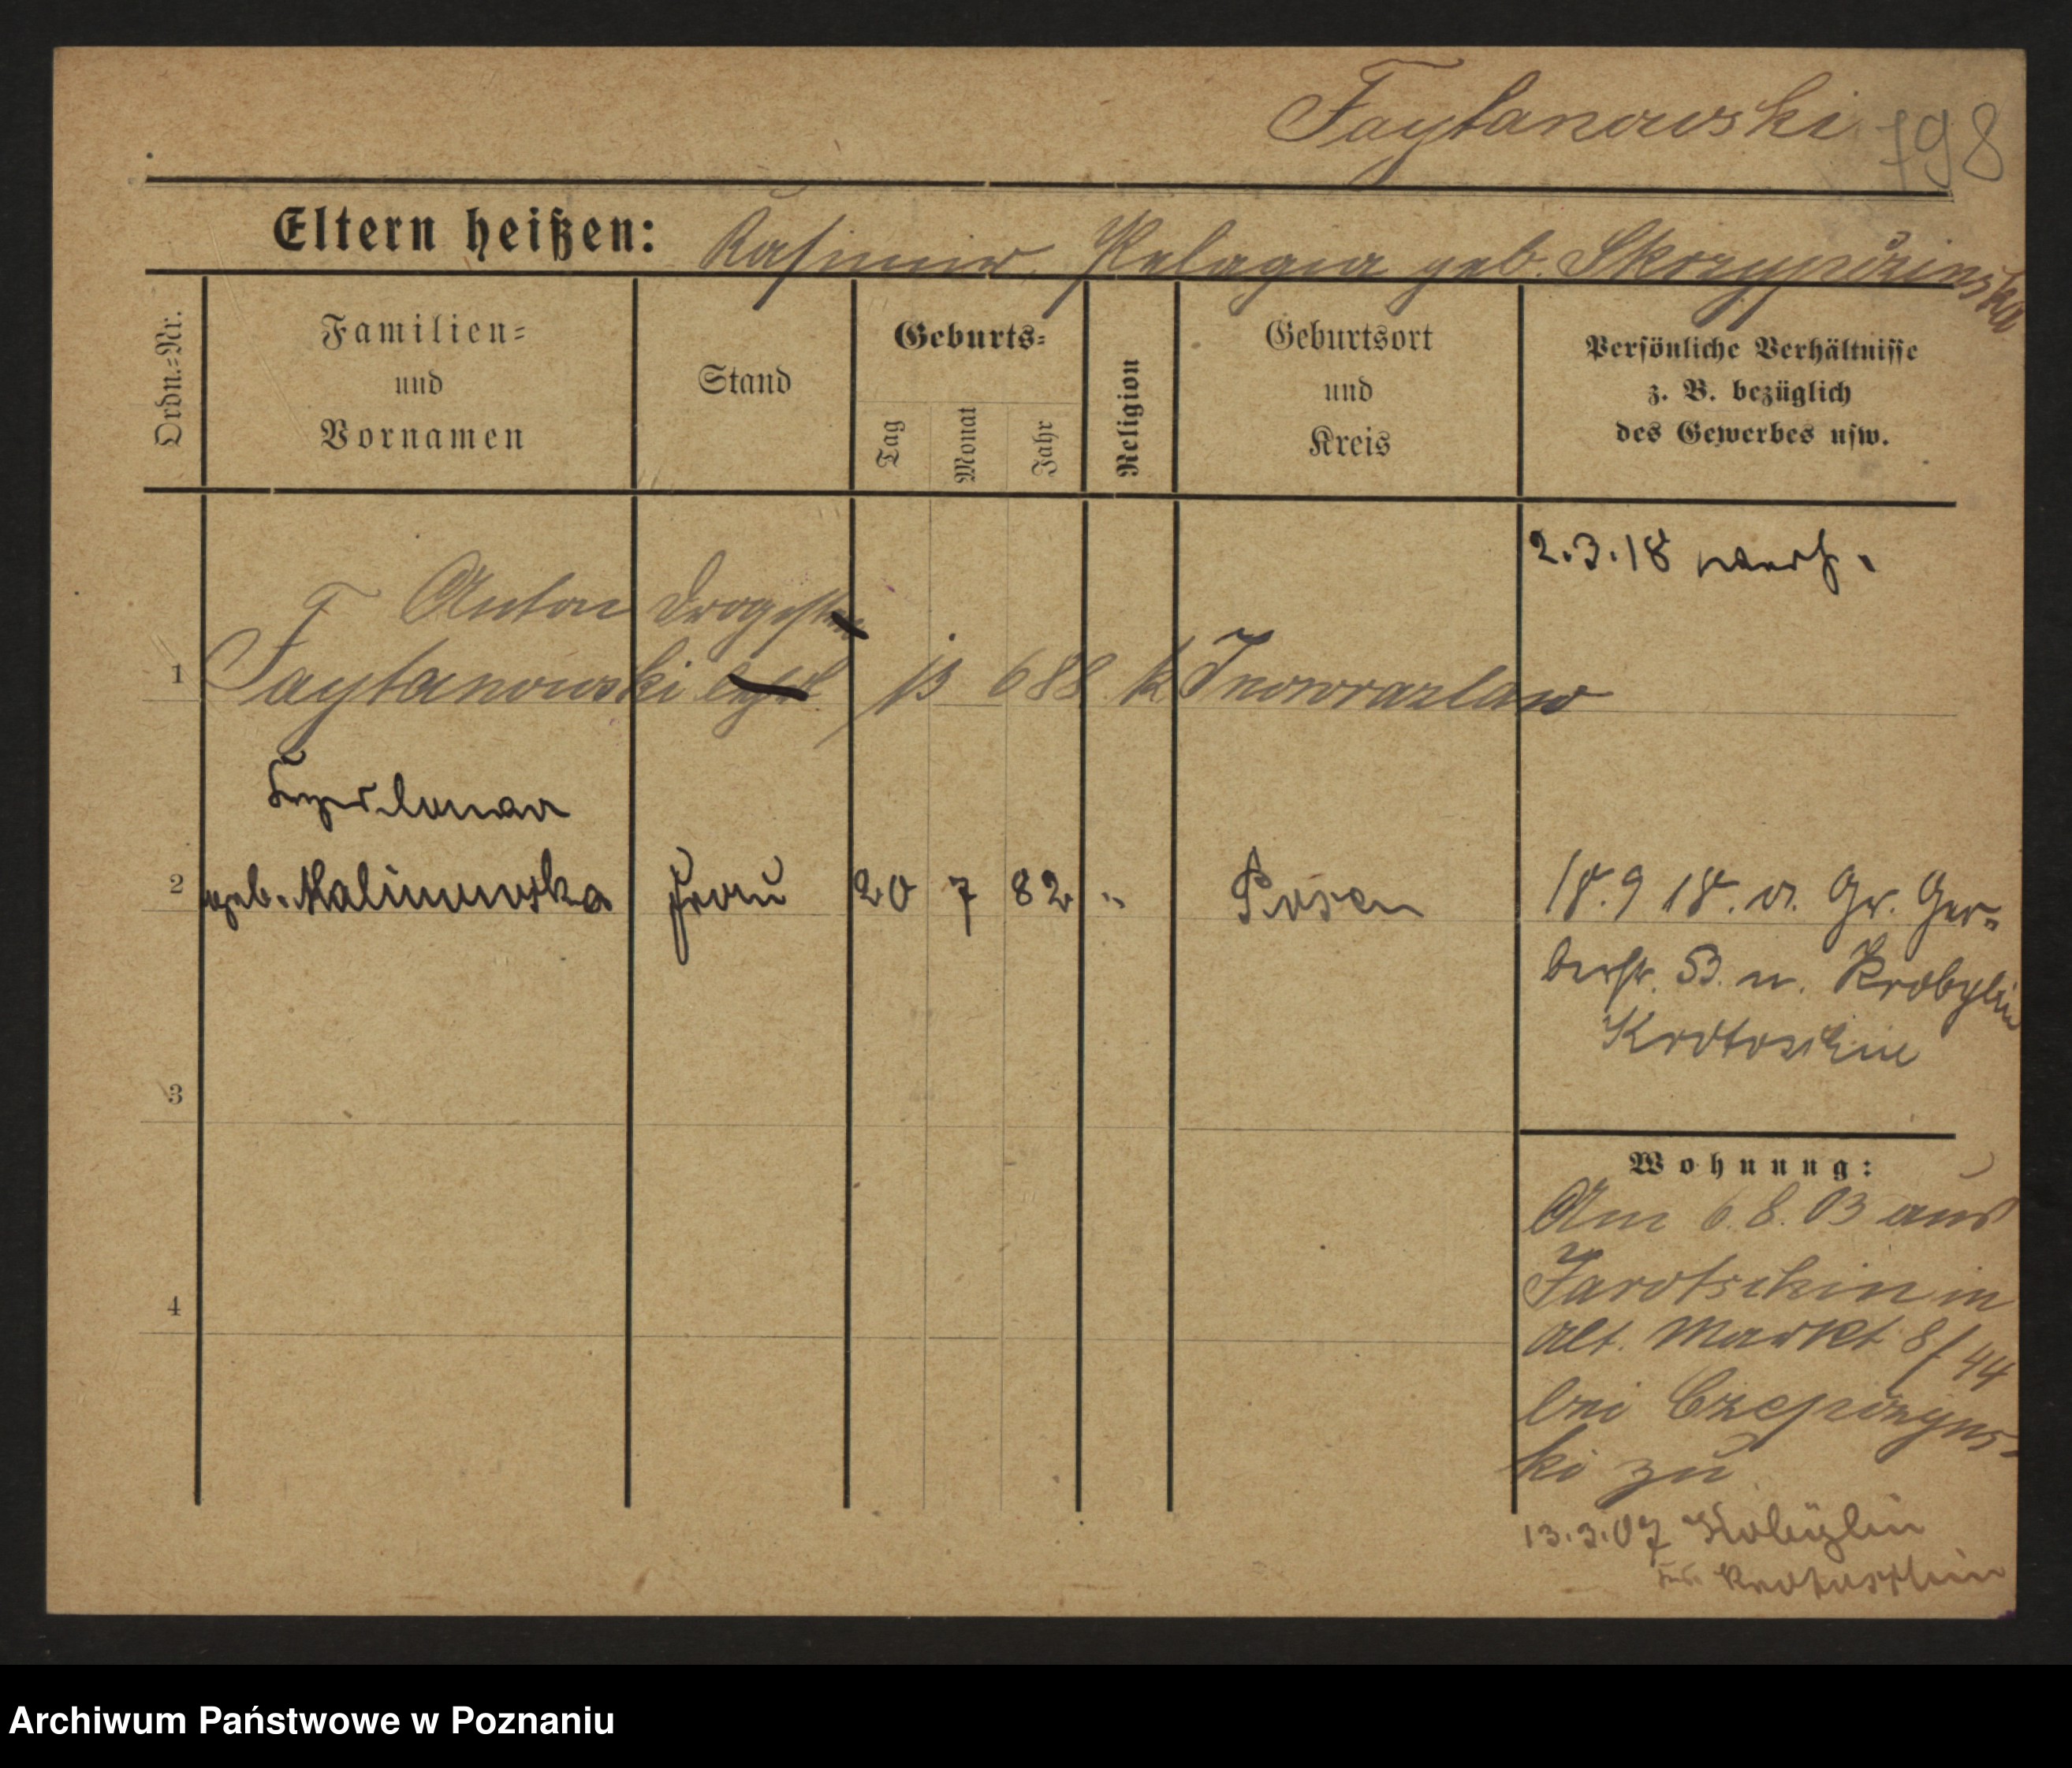 Faytanowski 798
Eltern heißen: Kasimir Pelagia geb. Skrzypczinska
Ordn.-Nr.
Familien-
und
Vornamen
Stand
Geburts-
Tag
Monat
Jahr
Religion
Geburtsort
und
Kreis
Persönliche Verhältnisse
z. B. bezüglich
des Gewerbes usw.
2.3.18
Anton Drogisten
1 Faytanowski 13 6 88 k Inowrazlaw
2 geb. Malinowska Frau 20 7 82 " Posen
18.9 18. v. Gr. Ger-
berstr. 53. n. Krobylin
Krotoschin
3
Wohnung:
Am 6.8.03 aus
Jarotschin in
Alt. Markt 8/44
bei Czepczyns-
ki zu
4
13.3.07 Kobylin
Krotoschin
Archiwum Państwowe w Poznaniu